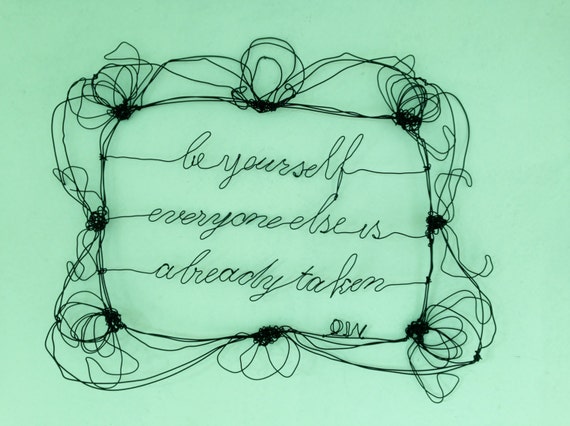 be yourself
everyone else is
already taken
OW